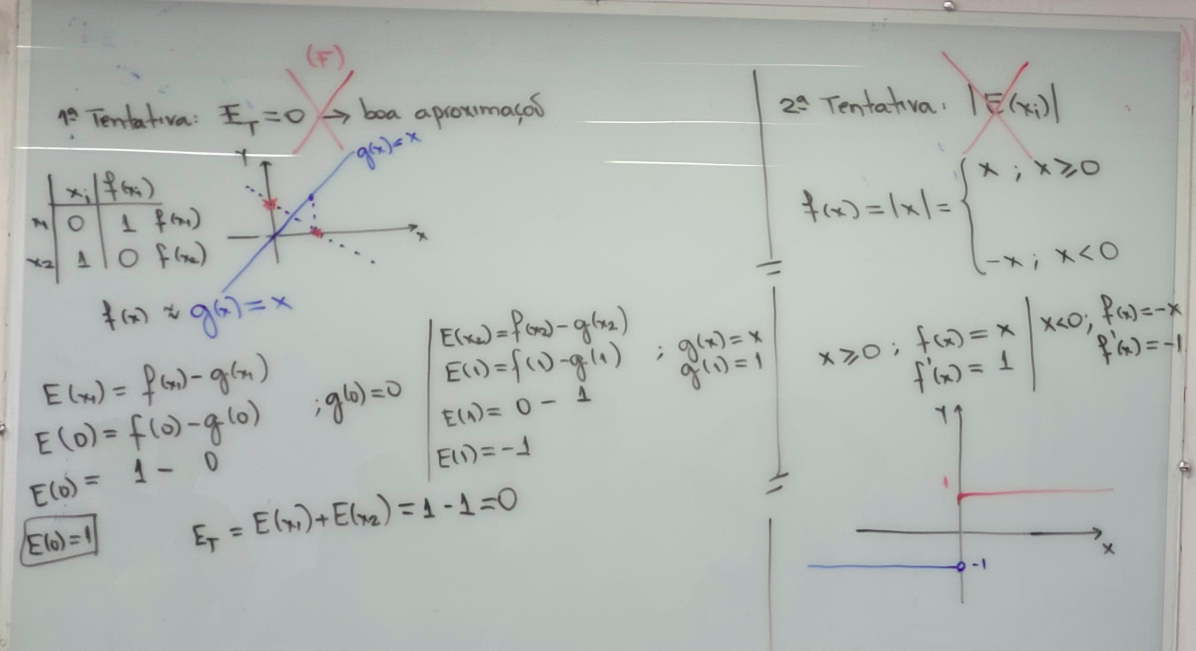 (F)
1ª Tentativa: E_T = 0 → boa aproximação
g(x) = x
Y
x
xᵢ | f(xᵢ)
x₁ | 0 | 1 f(x₁)
x₂ | 1 | 0 f(x₂)
f(x) ≈ g(x) = x
E(x₁) = f(x₁) - g(x₁)
E(0) = f(0) - g(0) ; g(0) = 0
E(0) = 1 - 0
E(0) = 1
E(x₂) = f(x₂) - g(x₂)
E(1) = f(1) - g(1) ; g(x) = x
g(1) = 1
E(1) = 0 - 1
E(1) = -1
E_T = E(x₁) + E(x₂) = 1 - 1 = 0
2ª Tentativa: |E(xᵢ)|
f(x) = |x| = { x ; x ⩾ 0
-x ; x < 0
x ⩾ 0 ; f(x) = x
f'(x) = 1
x < 0 ; f(x) = -x
f'(x) = -1
Y
1
x
-1